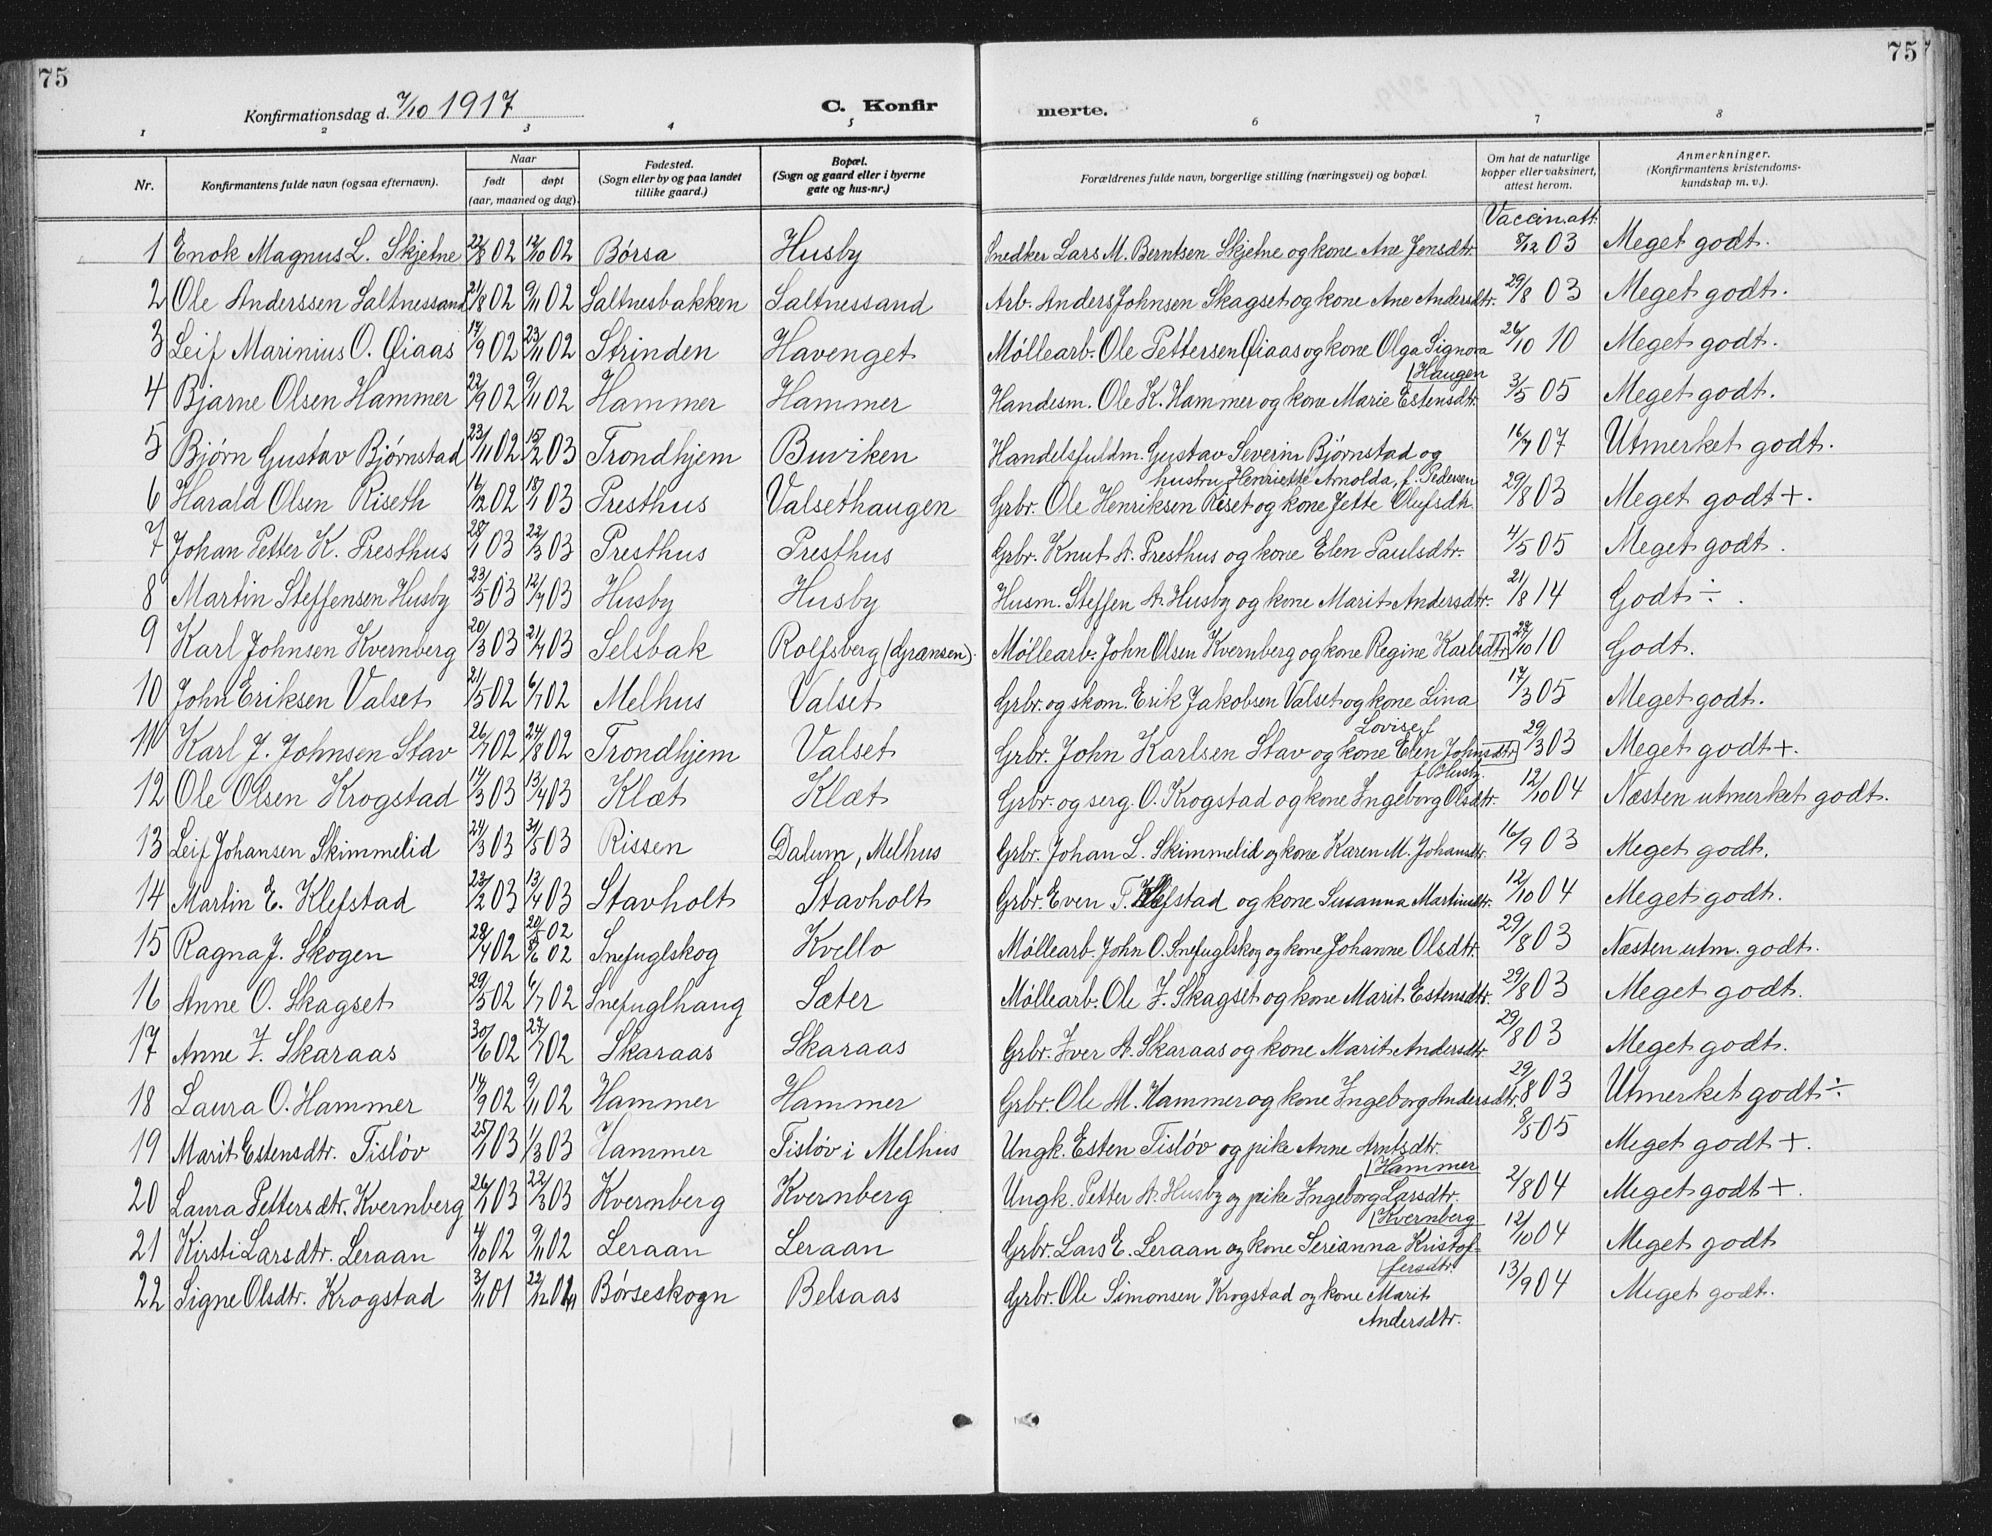 75
75
Konfirmationsdag d. 7/10 1917
C. Konfir
merte.
1 2 3 4 5 6 7 8
Nr.
Konfirmantens fulde navn (ogsaa efternavn).
Naar
født
døpt
(aar, maaned og dag).
Fødested.
(Sogn eller by og paa landet
tillike gaard.)
Bopæl.
(Sogn og gaard eller i byerne
gate og hus-nr.)
Forældrenes fulde navn, borgerlige stilling (næringsvei) og bopæl.
Om hat de naturlige
kopper eller vaksinert,
attest herom.
Anmerkninger.
(Konfirmantens kristendoms-
kundskap m. v.).
Vaccin.att.
1 Enok Magnus L. Skjetne 22/8 02 12/10 02 Børsa Husby Snedker Lars M. Berntsen Skjetne og kone Ane Jensdtr. 8/12 03 Meget godt.
2 Ole Anderssen Saltnessand 21/8 02 9/11 02 Saltnesbakken Saltnessand Arb. Anders Johnsen Skagset og kone Ane Andersdtr. 29/8 03 Meget godt.
3 Leif Marinius O. Øiaas 17/9 02 23/11 02 Strinden Havenget Møllearb. Ole Pettersen Øiaas og kone Olga Signora 26/10 10 Meget godt.
Haugen
4 Bjarne Olsen Hammer 22/9 02 9/11 02 Hammer Hammer Handesm. Ole K. Hammer og kone Marie Estensdtr. 3/5 05 Meget godt.
5 Bjørn Gustav Bjørnstad 23/11 02 15/2 03 Trondhjem Buviken Handelsfuldm. Gustav Severin Bjørnstad og 16/7 07 Utmerket godt.
hustru Henriette Arnolda, f. Pedersen
6 Harald Olsen Riseth 16/12 02 18/1 03 Presthus Valsethaugen Grbr. Ole Henriksen Riset og kone Jette Olufsdtr. 29/8 03 Meget godt +.
7 Johan Petter K. Presthus 28/1 03 22/3 03 Presthus Presthus Grbr. Knut A. Presthus og kone Elen Paulsdtr. 4/5 05 Meget godt.
8 Martin Steffensen Husby 23/5 03 12/7 03 Husby Husby Husm. Steffen A. Husby og kone Marit Andersdtr. 21/8 14 Godt ÷.
9 Karl Johnsen Kvernberg 20/3 03 21/7 03 Selsbak Rolfsberg (Grænsen). Møllearb. John Olsen Kvernberg og kone Regine Karlsdtr. 27/10 10 Godt.
10 John Eriksen Valset 21/5 02 6/7 02 Melhus Valset Grbr. og skom. Erik Jakobsen Valset og kone Lina 17/3 05 Meget godt.
Lovise f
11 Karl J. Johnsen Stav 26/7 02 24/8 02 Trondhjem Valset Grbr. John Karlsen Stav og kone Elen Johnsdtr. 29/3 03 Meget godt +.
f. Husby.
12 Ole Olsen Krogstad 17/3 03 13/4 03 Klæt Klæt Grbr. og serg. O. Krogstad og kone Ingeborg Olsdtr. 12/10 04 Næsten utmerket godt.
13 Leif Johansen Skimmelid 24/3 03 31/5 03 Rissen Dalum, Melhus Grbr. Johan L. Skimmelid og kone Karen M. Johansdtr. 16/9 03 Meget godt.
14 Martin E. Klefstad 23/2 03 13/4 03 Stavholt Stavholt Grbr. Even T. Klefstad og kone Susanna Martinsdtr. 12/10 04 Meget godt.
20/5 02
15 Ragna J. Skogen 28/4 02 8/6 02 Snefuglskog Kvello Møllearb. John O. Snefuglskog og kone Johanne Olsdtr. 29/8 03 Næsten utm. godt.
16 Anne O. Skagset 29/5 02 6/7 02 Snefuglhaug Sæter Møllearb. Ole J. Skagset og kone Marit Estensdtr. 29/8 03 Meget godt.
17 Anne I. Skaraas 30/6 02 27/7 02 Skaraas Skaraas Grbr. Iver A. Skaraas og kone Marit Andersdtr. 29/8 03 Meget godt.
18 Laura O. Hammer 17/9 02 9/11 02 Hammer Hammer Grbr. Ole M. Hammer og kone Ingeborg Andersdtr. 29/8 03 Utmerket godt ÷
19 Marit Estensdtr. Tisløv 25/1 03 1/3 03 Hammer Tisløv i Melhus Ungk. Esten Tisløv og pike Anne Arntsdtr. 8/5 05 Meget godt +.
Hammer
20 Laura Pettersdtr. Kvernberg 26/1 03 22/3 03 Kvernberg Kvernberg Ungk. Petter A. Husby og pike Ingeborg Larsdtr. 2/8 04 Meget godt +.
Kvernberg
21 Kirsti Larsdtr. Leraan 4/10 02 9/11 02 Leraan Leraan Grbr. Lars E. Leraan og kone Serianna Kristof- 12/10 04 Meget godt
fersdtr.
22 Signe Olsdtr. Krogstad 3/11 01 22/12 01 Børseskogn Belsaas Grbr. Ole Simonsen Krogstad og kone Marit 13/9 04 Meget godt.
Andersdtr.